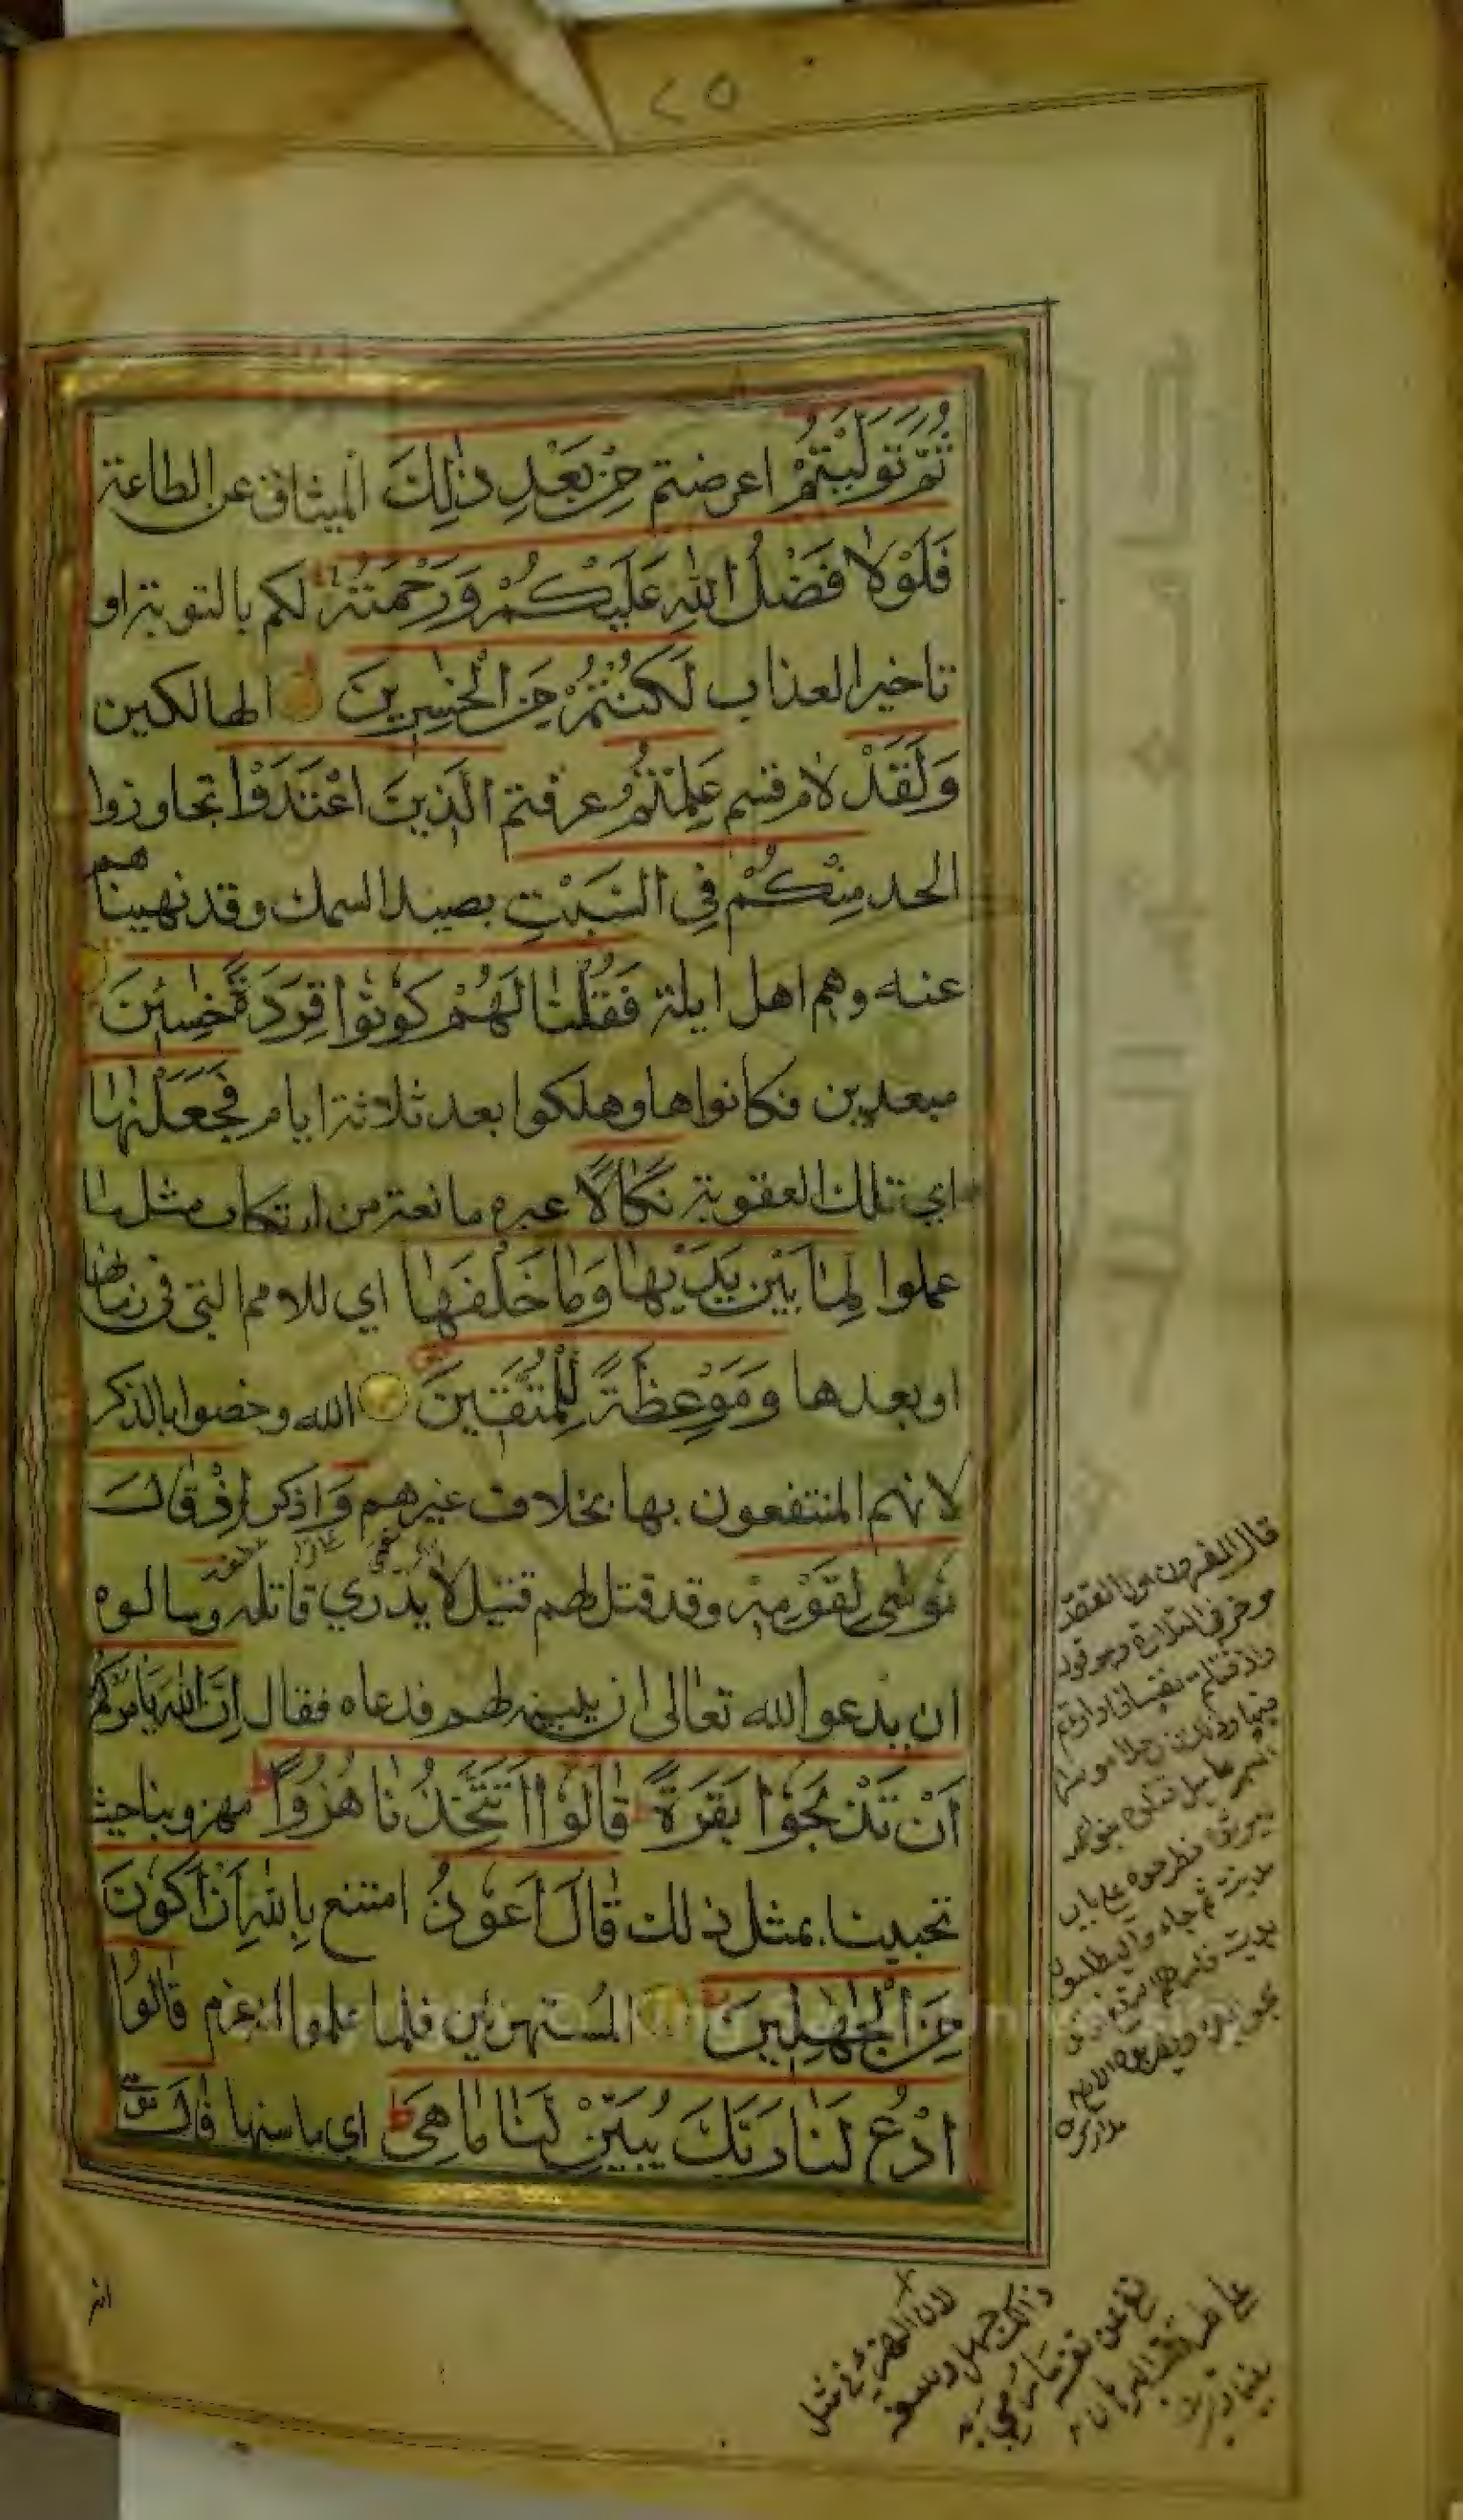 ٢٥
ثُمَّ تَوَلَّيْتُمْ اعرضتم مِنْ بَعْدِ ذٰلِكَ الميثاق عن الطاعة
فَلَوْلَا فَضْلُ اللّٰهِ عَلَيْكُمْ وَرَحْمَتُهُ لكم بالتوبة او
تاخير العذاب لَكُنْتُمْ مِنَ الْخٰسِرِينَ الهالكين
وَلَقَدْ لام قسم عَلِمْتُمُ عرفتم الَّذِينَ اعْتَدَوْا تجاوزوا
الحد مِنْكُمْ فِي السَّبْتِ بصيد السمك وقد نهيناهم
عنه وهم اهل ايلة فَقُلْنَا لَهُمْ كُونُوا قِرَدَةً خٰسِئِينَ
مبعدين فكانوا ها وهلكوا بعد ثلاثة ايام فَجَعَلْنٰهَا
اي تلك العقوبة نَكَالًا عبرة مانعة من ارتكاب مثل ما
عملوا لِمَا بَيْنَ يَدَيْهَا وَمَا خَلْفَهَا اي للامم التي في زمانها
او بعدها وَمَوْعِظَةً لِلْمُتَّقِينَ الله وخصوا بالذكر
لانهم المنتفعون بها بخلاف غيرهم وَ اذكر اِذْ قَالَ
مُوسٰى لِقَوْمِهِ وقد قتل لهم قتيل لا يدرى قاتله وسالوه
ان يدعو الله تعالى ان يبينه لهم فدعاه فقال اِنَّ اللّٰهَ يَأْمُرُكُمْ
اَنْ تَذْبَحُوا بَقَرَةً قَالُوا اَتَتَّخِذُنَا هُزُوًا مهزوبنا حيث
تجيبنا بمثل ذلك قَالَ اَعُوذُ امتنع بِاللّٰهِ اَنْ اَكُونَ
مِنَ الْجٰهِلِينَ المستهزئين فلما علموا انه عزم قَالُوا
ادْعُ لَنَا رَبَّكَ يُبَيِّنْ لَنَا مَا هِيَ اي ما سنها قَالَ
انه
قال المفسرون اول القصة
موخر في التلاوة وهو قوله
واذ قتلتم نفسا فادارأتم
فيها وذلك ان رجلا موسرا
لان الهزء في مثل
ذلك جهل وسفه